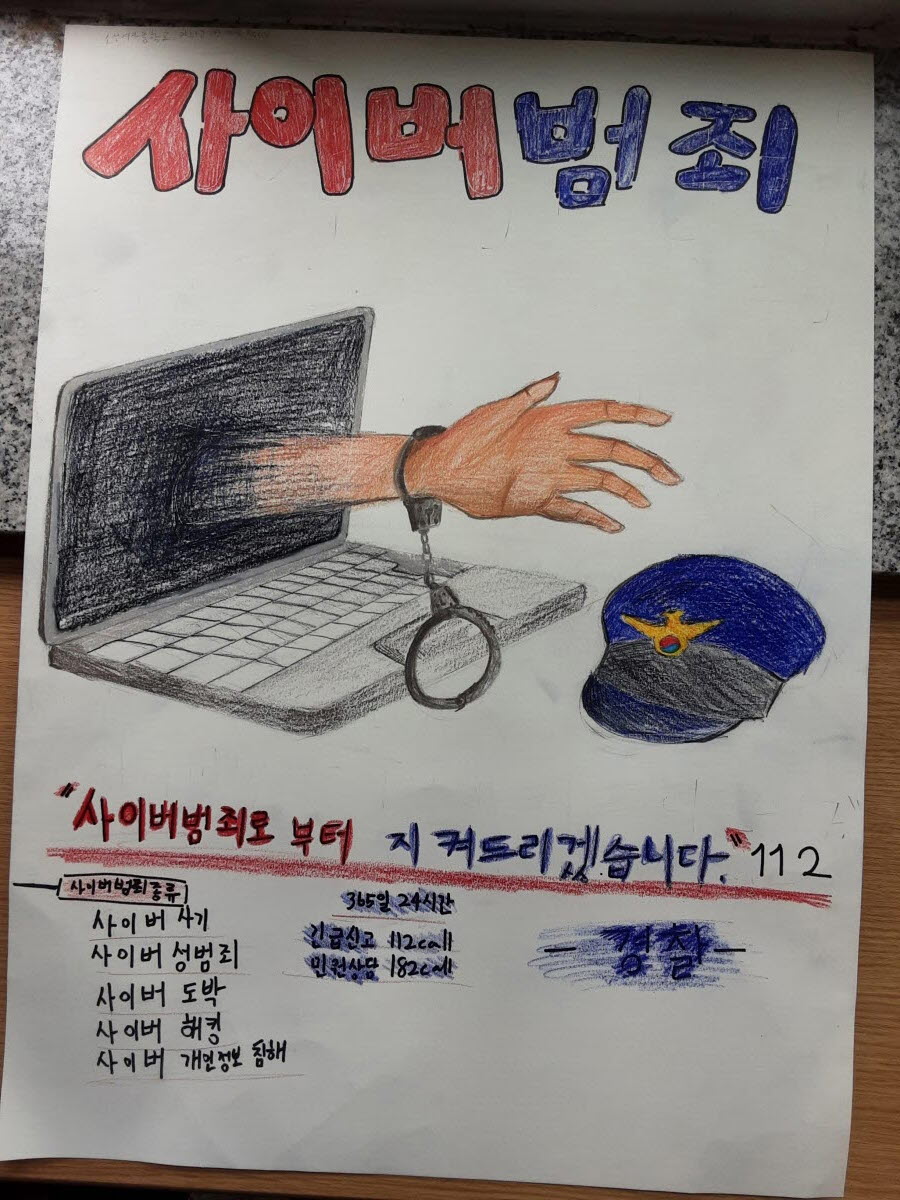 사이버범죄
"사이버범죄로 부터 지켜드리겠습니다." 112
사이버범죄종류
사이버 사기
사이버 성범죄
사이버 도박
사이버 해킹
사이버 개인정보 침해
365일 24시간
긴급신고 112call
민원상담 182call
- 경찰 -